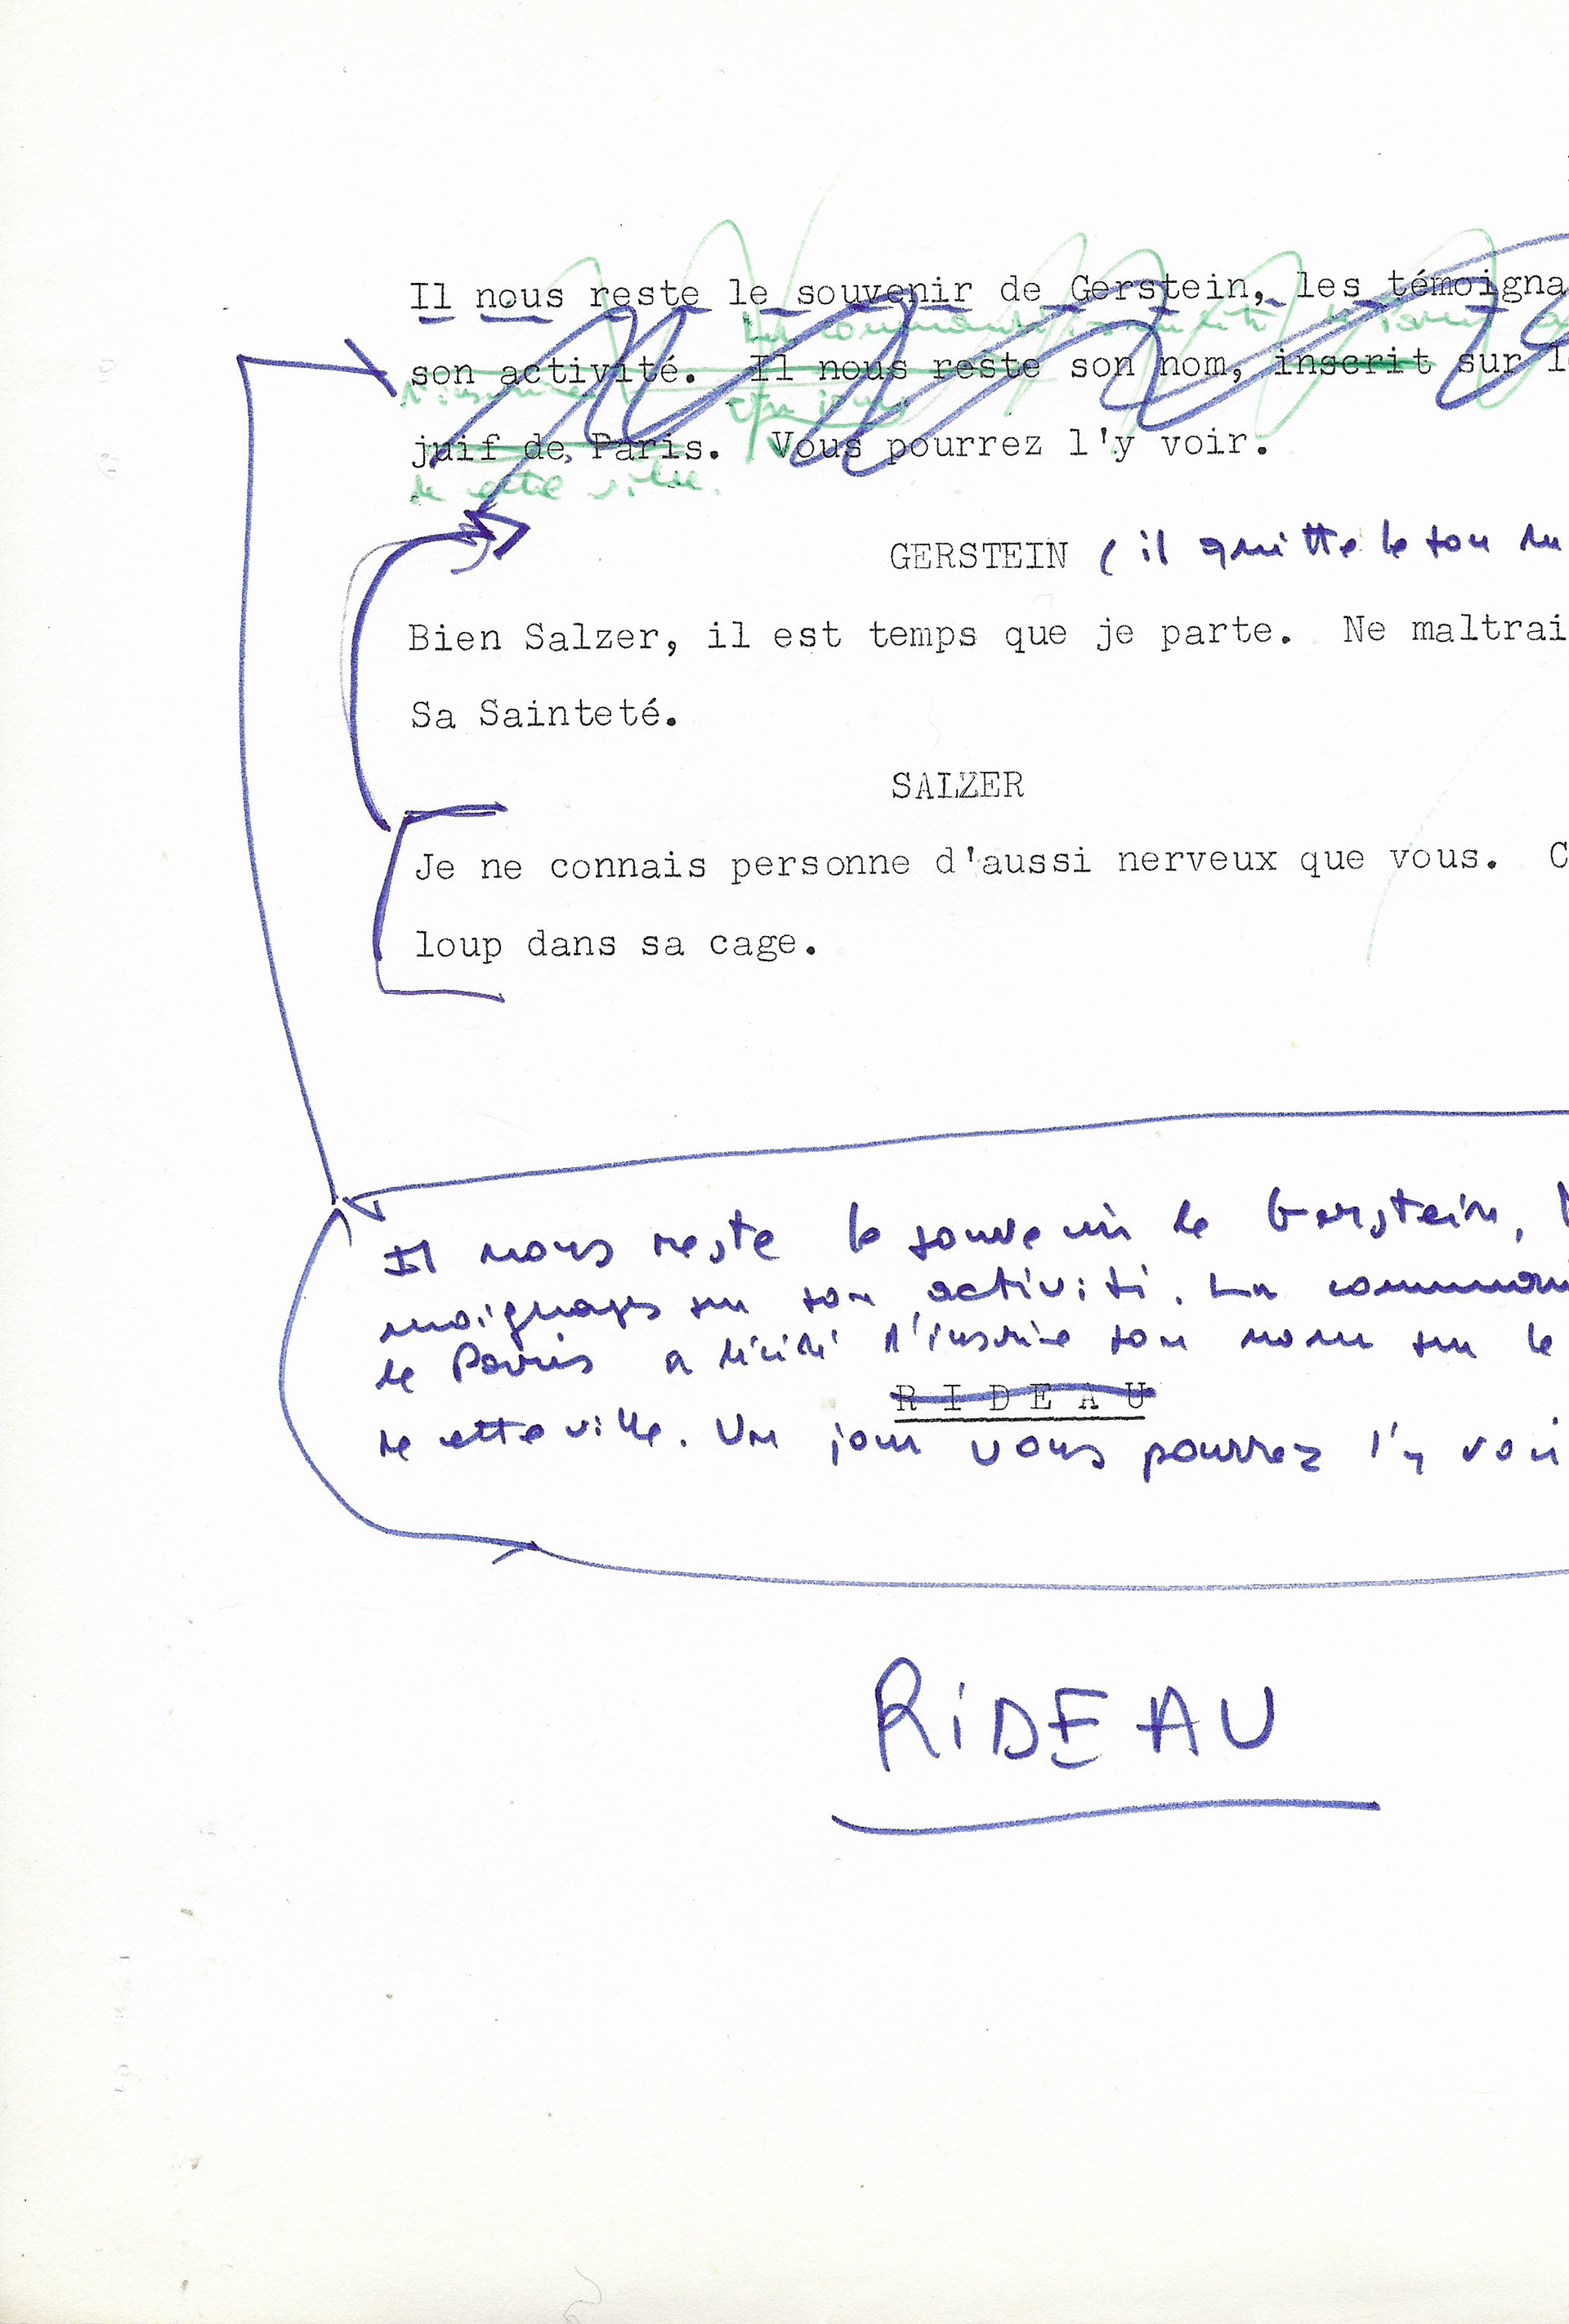 Il nous reste le souvenir de Gerstein, les témoigna
son activité. Il nous reste son nom, inscrit sur l
d'inscrire Un jour
juif de Paris. Vous pourrez l'y voir.
de cette ville.
GERSTEIN (il quitte le ton du
Bien Salzer, il est temps que je parte. Ne maltrai
Sa Sainteté.
SALZER
Je ne connais personne d'aussi nerveux que vous. C
loup dans sa cage.
Il nous reste le souvenir de Gerstein, l
moignages sur son activité. La commun
de Paris a décidé d'inscrire son nom sur le
R I D E A U
de cette ville. Un jour vous pourrez l'y voi
RiDEAU